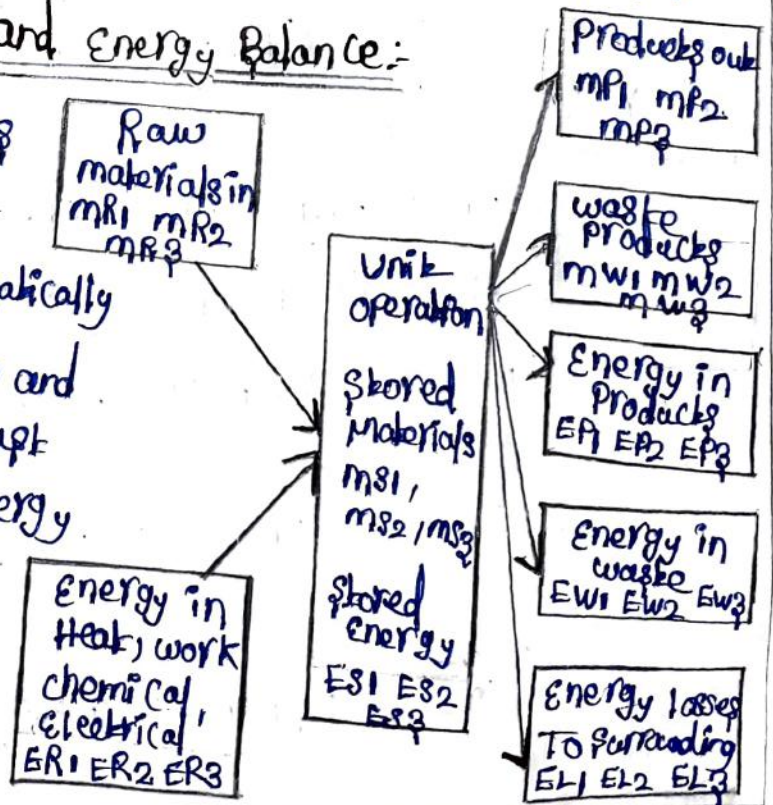 and Energy Balance:-
Raw
materials in
mR1 mR2
mR3
atically
and
ergy
Energy in
Heat, work
chemical,
Electrical
ER1 ER2 ER3
Unit
operation
Stored
Materials
ms1,
ms2, ms3
Stored
Energy
ES1 ES2
ES3
Products out
mP1 mP2
mP3
waste
Products
mw1 mw2
mw3
Energy in
Products
EP1 EP2 EP3
Energy in
waste
EW1 EW2 EW3
Energy losses
To Surrounding
EL1 EL2 EL3